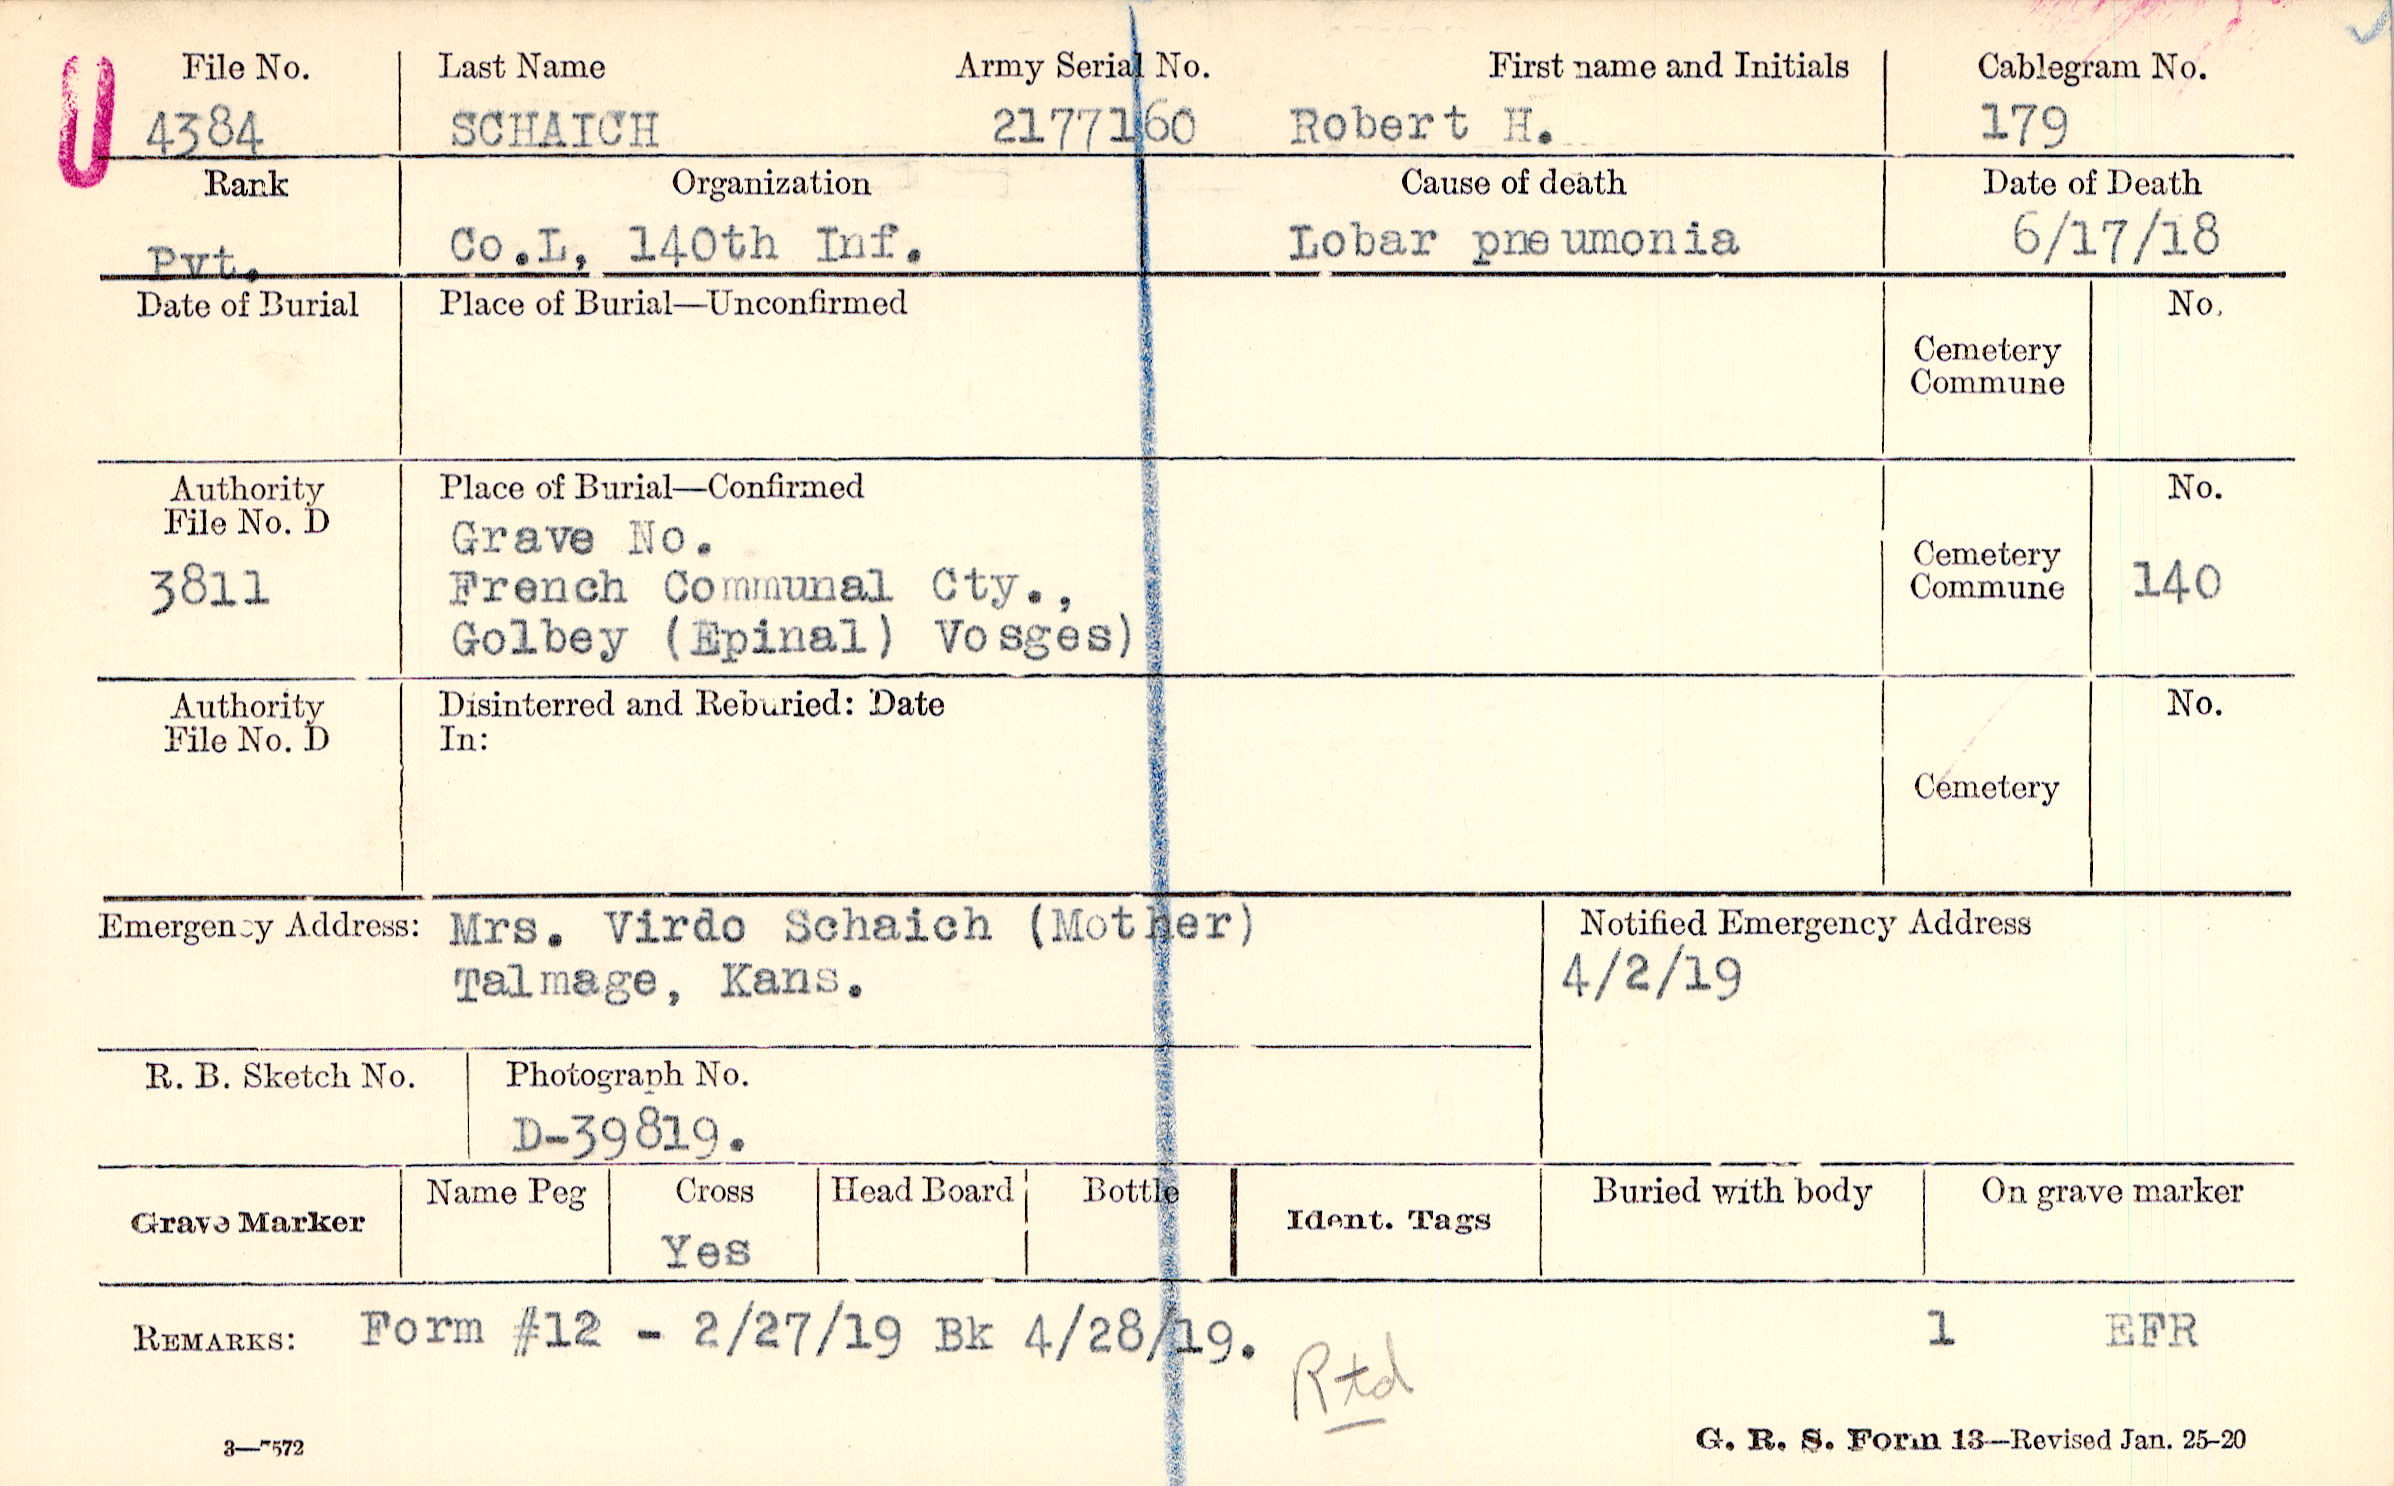 File No. Last Name Army Serial No. First name and Initials Cablegram No.
4384 SCHAICH 2177160 Robert H. 179
Rank Organization Cause of death Date of Death
Pvt. Co.L, 140th Inf. Lobar pneumonia 6/17/18
Date of Burial Place of Burial—Unconfirmed No.
Cemetery
Commune
Authority Place of Burial—Confirmed No.
File No. D
Grave No.
3811 French Communal Cty., Cemetery
Commune 140
Golbey (Epinal) Vosges)
Authority Disinterred and Reburied: Date No.
File No. D In:
Cemetery
Emergency Address: Mrs. Virdo Schaich (Mother) Notified Emergency Address
Talmage, Kans. 4/2/19
R. B. Sketch No. Photograph No.
D-39819.
Grave Marker Name Peg Cross Head Board Bottle Ident. Tags Buried with body On grave marker
Yes
REMARKS: Form #12 - 2/27/19 Bk 4/28/19. 1 EFR
Rtd
3—7572 G. R. S. Form 13—Revised Jan. 25-20